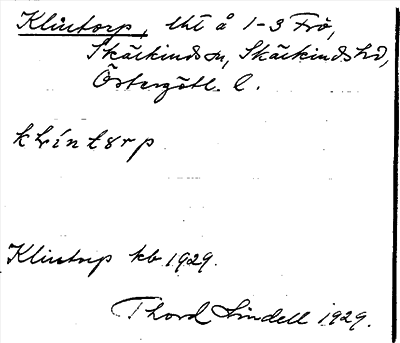 Klintorp, lht å 1-3 Frö,
Skärkinds sn, Skärkinds hd,
Östergötl. l.
klíntɤrp
Klintorp kb 1929.
Thord Lindell 1929.